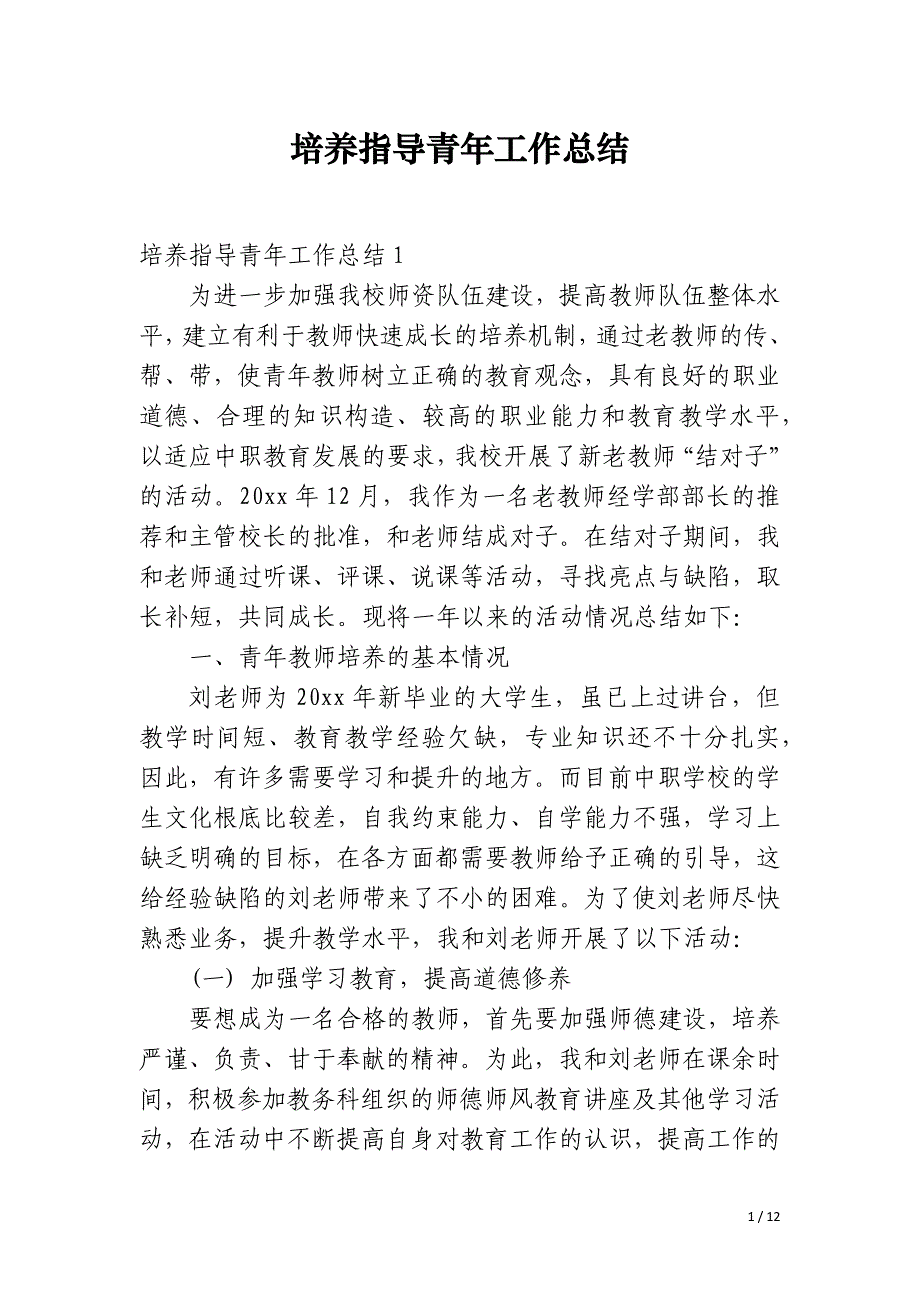 培养指导青年工作总结
培养指导青年工作总结1
为进一步加强我校师资队伍建设，提高教师队伍整体水
平，建立有利于教师快速成长的培养机制，通过老教师的传、
帮、带，使青年教师树立正确的教育观念，具有良好的职业
道德、合理的知识构造、较高的职业能力和教育教学水平，
以适应中职教育发展的要求，我校开展了新老教师“结对子”
的活动。20xx 年 12 月，我作为一名老教师经学部部长的推
荐和主管校长的批准，和老师结成对子。在结对子期间，我
和老师通过听课、评课、说课等活动，寻找亮点与缺陷，取
长补短，共同成长。现将一年以来的活动情况总结如下：
一、青年教师培养的基本情况
刘老师为 20xx 年新毕业的大学生，虽已上过讲台，但
教学时间短、教育教学经验欠缺，专业知识还不十分扎实，
因此，有许多需要学习和提升的地方。而目前中职学校的学
生文化根底比较差，自我约束能力、自学能力不强，学习上
缺乏明确的目标，在各方面都需要教师给予正确的引导，这
给经验缺陷的刘老师带来了不小的困难。为了使刘老师尽快
熟悉业务，提升教学水平，我和刘老师开展了以下活动：
(一) 加强学习教育，提高道德修养
要想成为一名合格的教师，首先要加强师德建设，培养
严谨、负责、甘于奉献的精神。为此，我和刘老师在课余时
间，积极参加教务科组织的师德师风教育讲座及其他学习活
动，在活动中不断提高自身对教育工作的认识，提高工作的
1 / 12